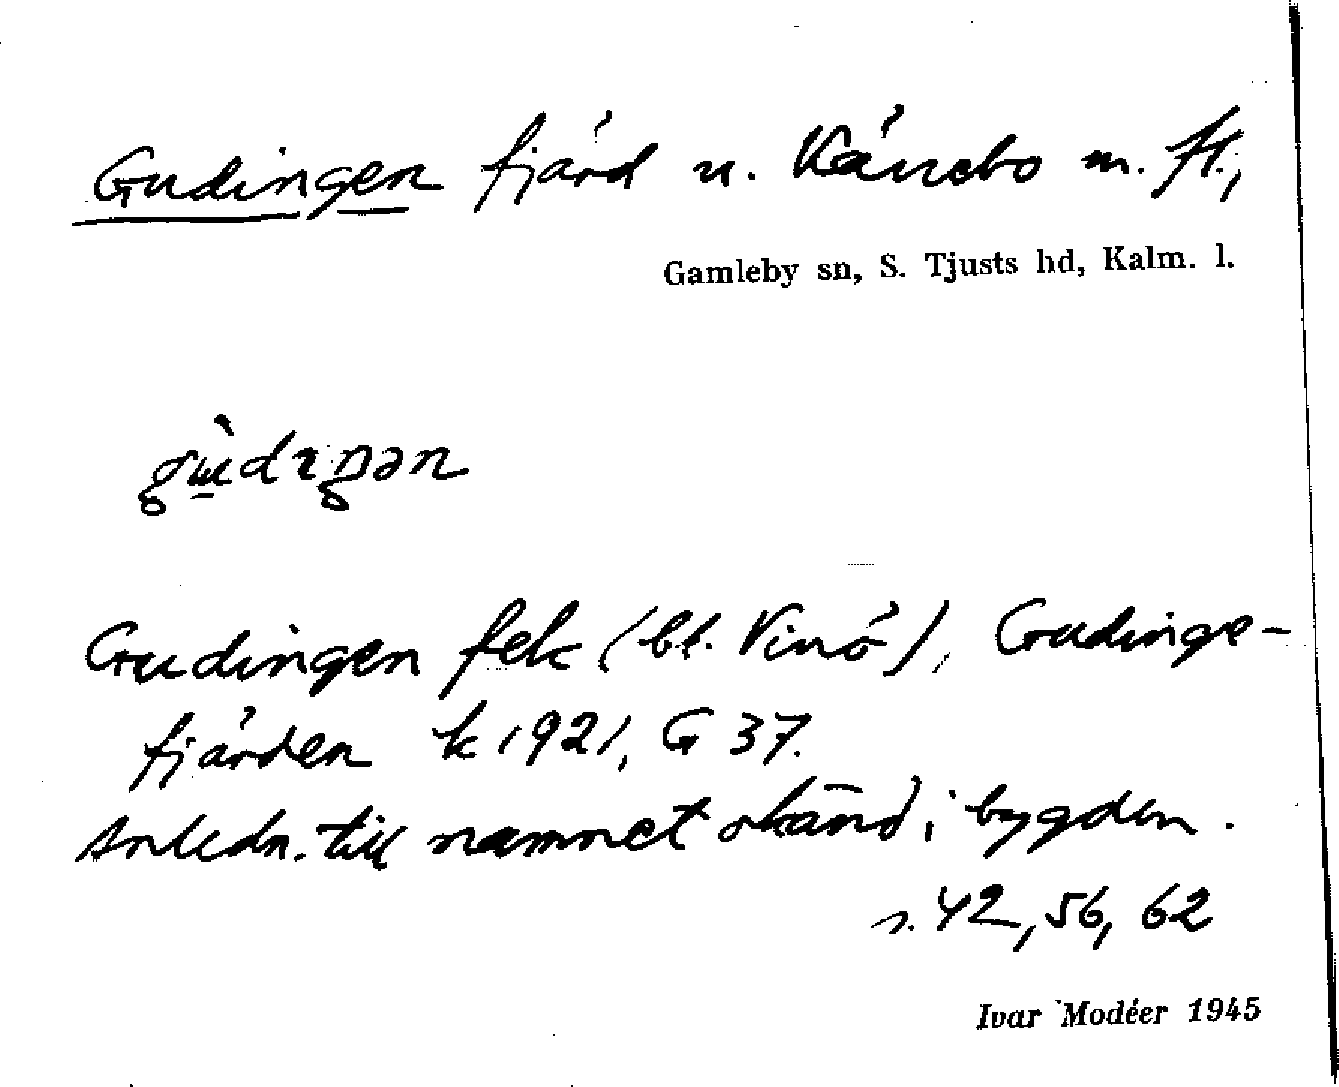 Gudingen fjärd u. Känebo m. fl.,
Gamleby sn, S. Tjusts hd, Kalm. l.
gɯ̀dıŋən
Gudingen fek (bl. Vinö), Gudinge-
fjärden k 1921, G 37.
Anledn. till namnet okänd i bygden.
s. 42, 56, 62
Ivar Modéer 1945